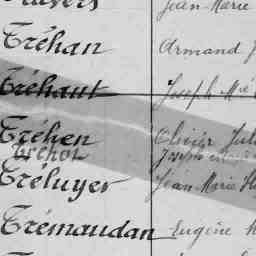 Tréhan Armand
Tréhaut Joseph Mie
Tréhen Olivier
Tréhot Joseph
Tréluyer Jean Marie
Trémaudan Eugène